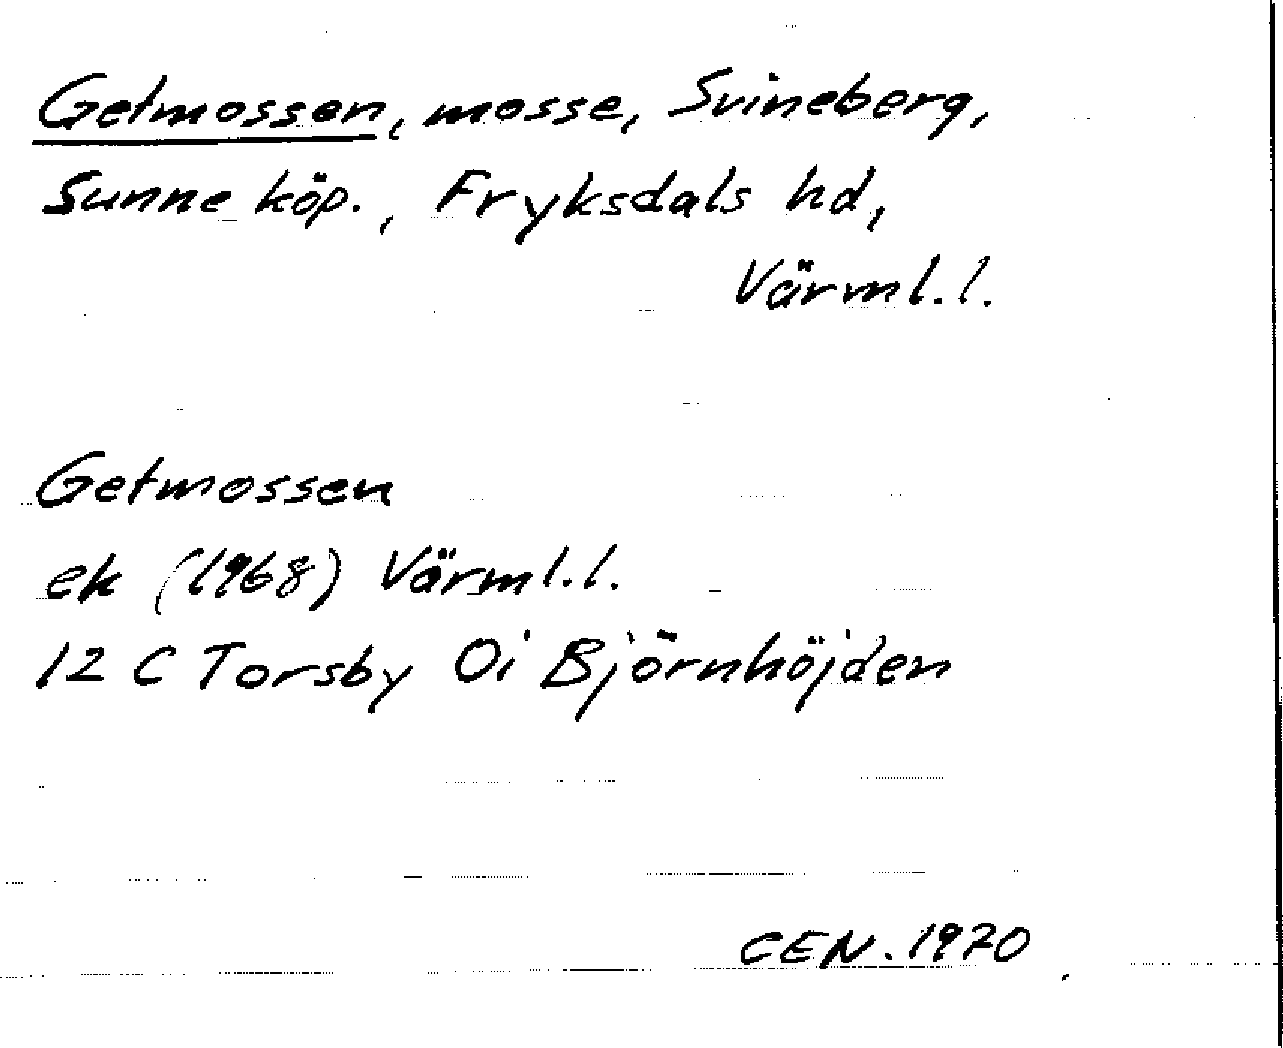 Getmossen, mosse, Svineberg,
Sunne köp., Fryksdals hd,
Värml.l.
Getmossen
ek (1968) Värml.l.
12 C Torsby Oi Björnhöjden
CEN. 1970